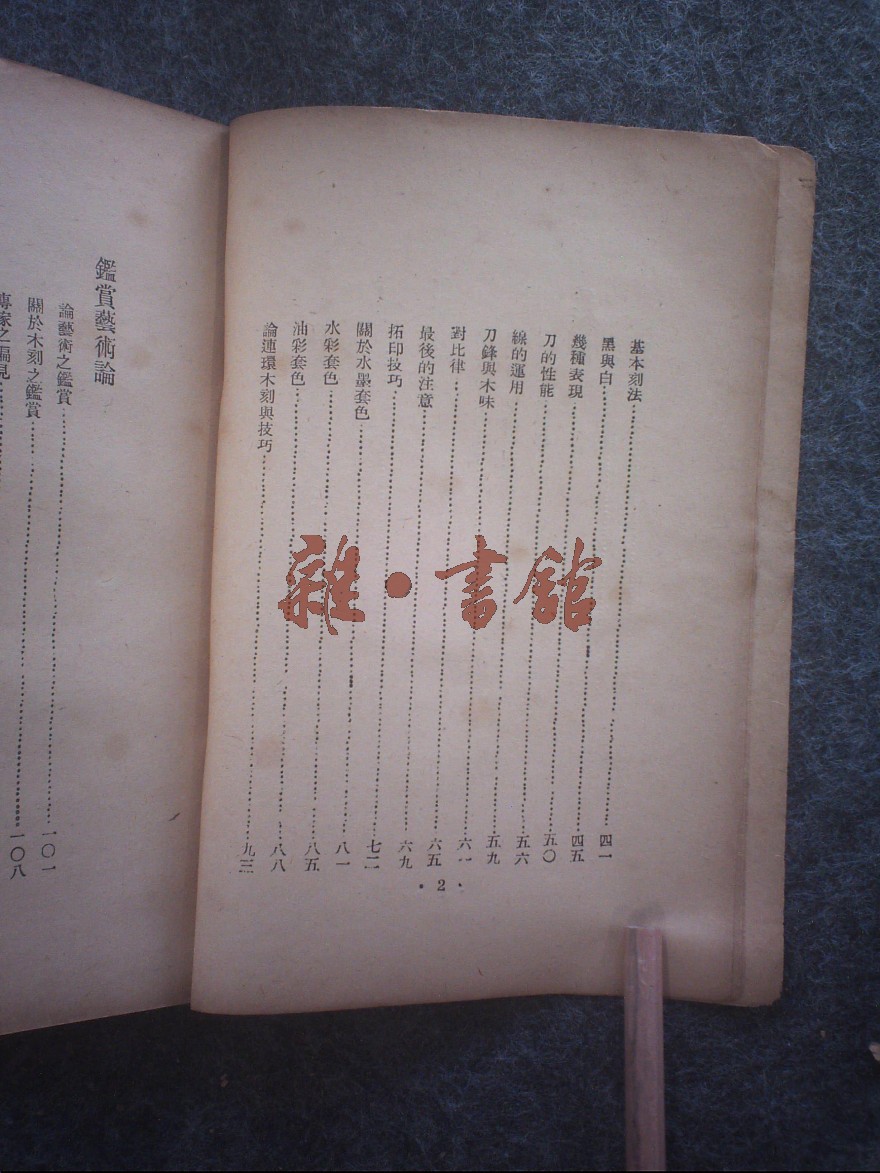 基本刻法……四一
黑與白……四五
幾種表現……五〇
刀的性能……五六
線的運用……五九
刀鋒與木味……六一
對比律……六五
最後的注意……六九
拓印技巧……七二
關於水墨套色……八一
水彩套色……八五
油彩套色……八八
論連環木刻與技巧……九三
· 2 ·
鑑賞藝術論
論藝術之鑑賞……一〇一
關於木刻之鑑賞……一〇八
之偏見……
雜·書館